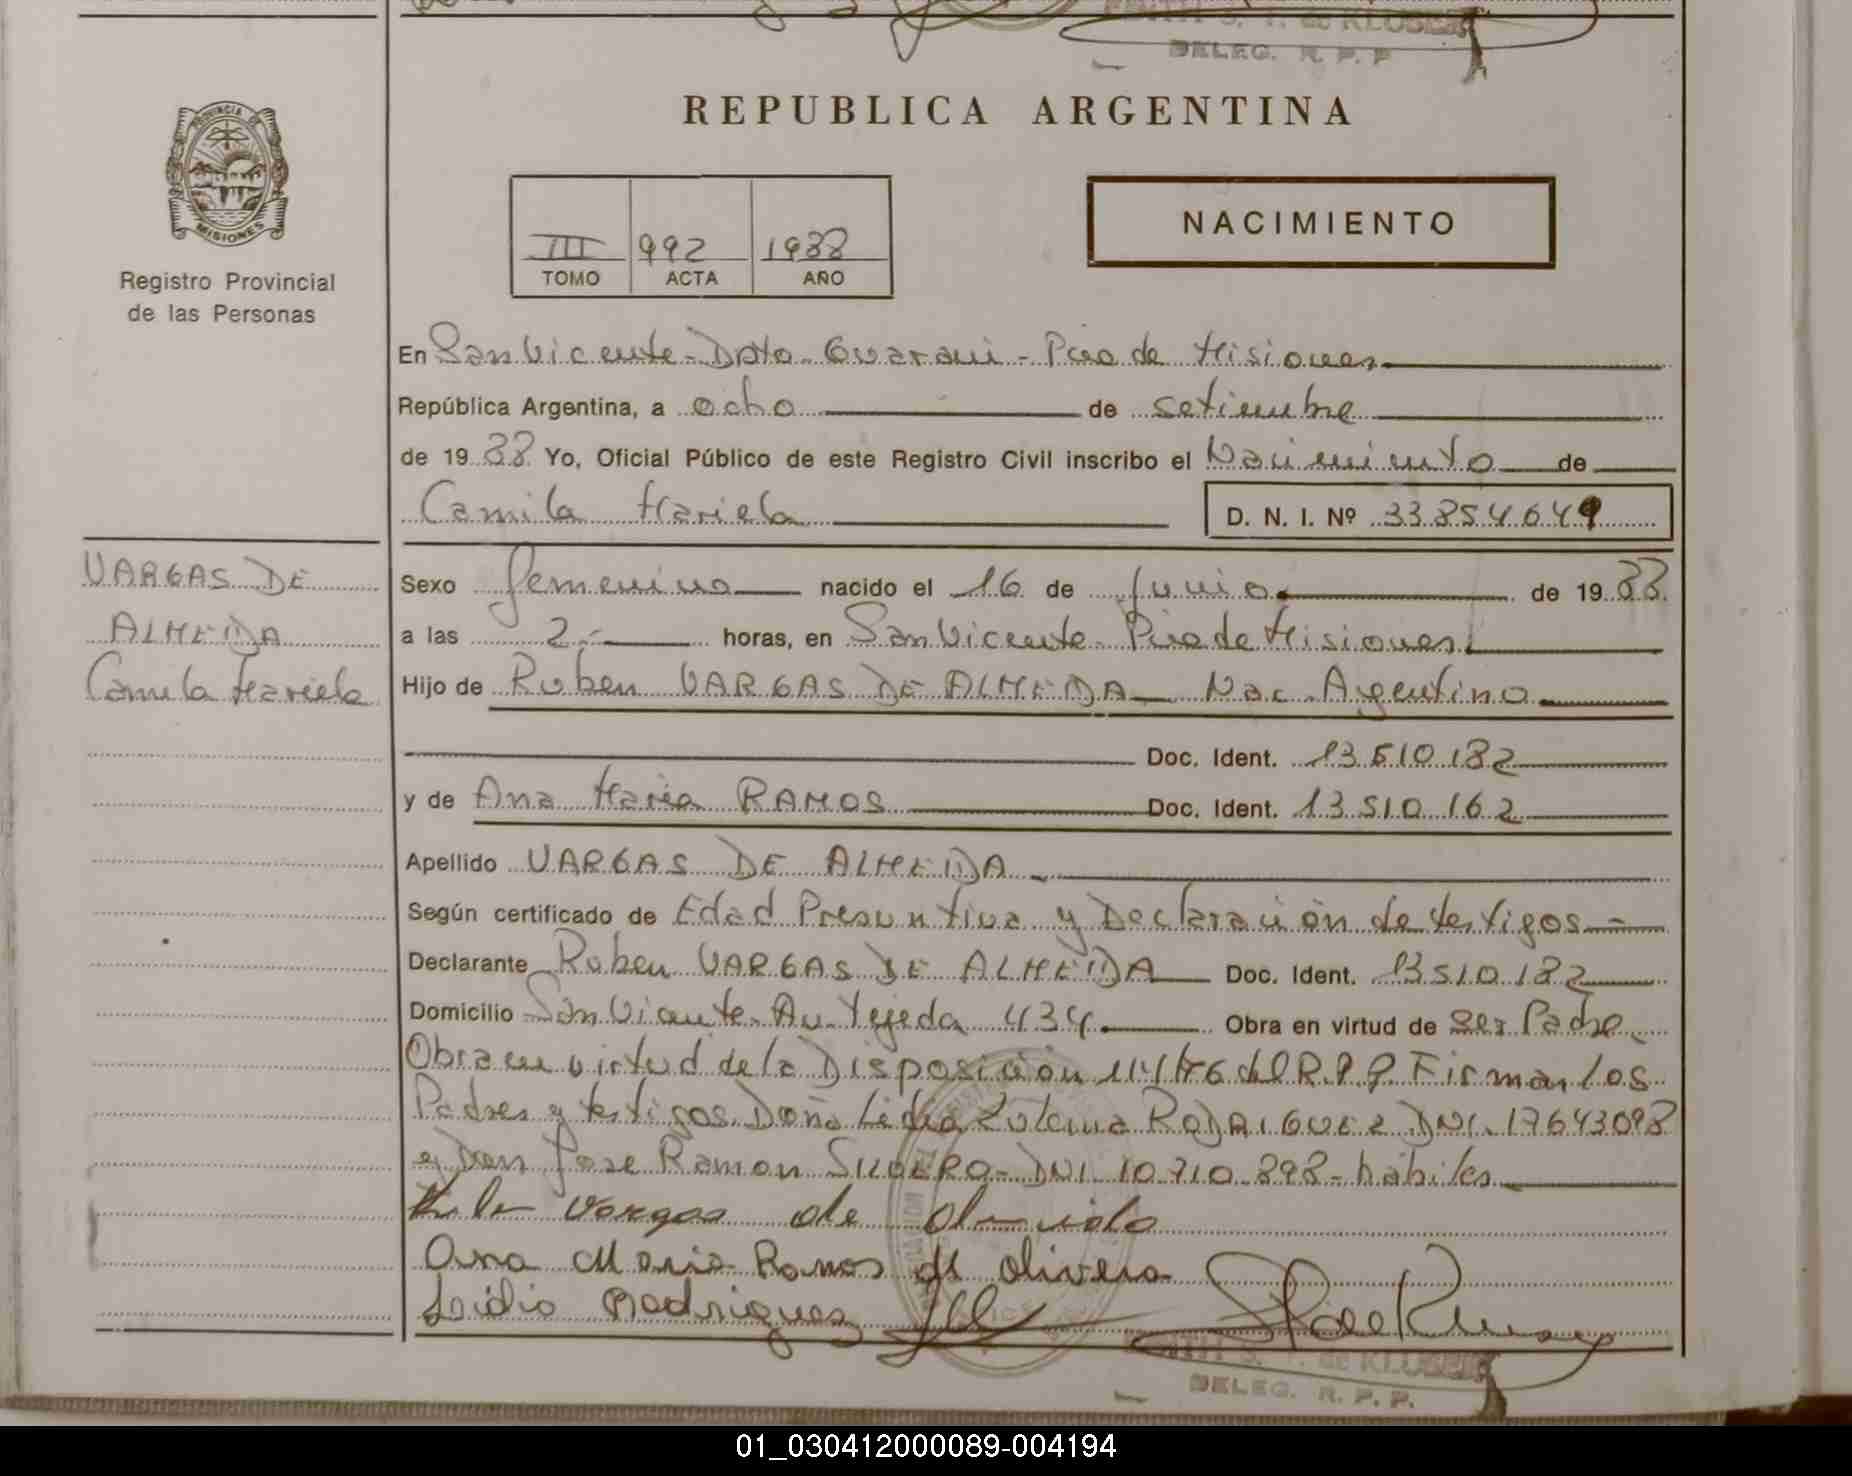 DELEG. R. P. P
REPUBLICA ARGENTINA
PROVINCIA DE
MISIONES
Registro Provincial
de las Personas
III 992 1988
TOMO ACTA AÑO
NACIMIENTO
En San Vicente - Dpto Guarani - Pcia de Misiones
República Argentina, a ocho de setiembre
de 1988 Yo, Oficial Público de este Registro Civil inscribo el Nacimiento de
Camila Mariela D. N. I. Nº 33854649
VARGAS DE
ALMEIDA
Camila Mariela
Sexo femenino nacido el 16 de Junio de 1988
a las 2.- horas, en San Vicente - Pcia de Misiones
Hijo de Ruben VARGAS DE ALMEIDA Nac. Argentino
Doc. Ident. 13510182
y de Ana Maria RAMOS Doc. Ident. 13510162
Apellido VARGAS DE ALMEIDA
Según certificado de Edad Presuntiva y Declaración de testigos
Declarante Ruben VARGAS DE ALMEIDA Doc. Ident. 13510182
Domicilio San Vicente Av. Tejeda 434 Obra en virtud de ser Padre
Obra en virtud de la Disposición 114/86 del R.P.P. Firman los
Padres y testigos Doña Lidia Zulema RODRIGUEZ DNI. 17643098
y Don Jose Ramon SILVERO - DNI 10.710.898 - hábiles
Vargas de
Ana Maria Ramos de Olivera
Lidia Rodriguez
EDITH S. T. de KLUSER
DELEG. R. P. P.
01_030412000089-004194